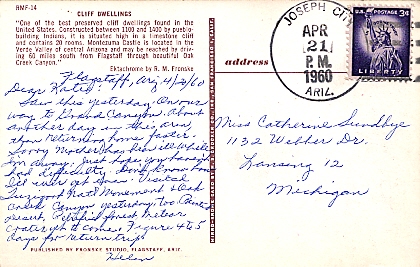 BMF-14
CLIFF DWELLINGS
"One of the best preserved cliff dwellings found in the
United States. Constructed between 1100 and 1400 by pueblo-
building Indians, it is situated high in a limestone cliff
and contains 20 rooms. Montezuma Castle is located in the
Verde Valley of central Arizona and may be reached by driv-
ing 65 miles south from Flagstaff through beautiful Oak
Creek Canyon."
Ektachrome by R. M. Fronske
Flagstaff, Ariz 4/2/60
Dear Katie:
Saw this yesterday. On our
way to Grand Canyon. About
another day in this area,
then returning home faster.
Sorry Mother has been ill while
I'm away. Just hope you haven't
had difficulty. Don't know how
I'll ever get over. Visited
Tuzigoot Nat'l Monument & Oak
Creek Canyon yesterday, too. Painted
Desert, Petrified forest, Meteor
Crater yet to come. Figure 4 to 5
days for return trip.
Helen
PUBLISHED BY FRONSKE STUDIO, FLAGSTAFF, ARIZ.
address
JOSEPH CITY
APR
21
P.M.
1960
ARIZ.
3¢
LIBERTY
Miss Catherine Sundbye
1132 Webber Dr.
Lansing 12
Michigan